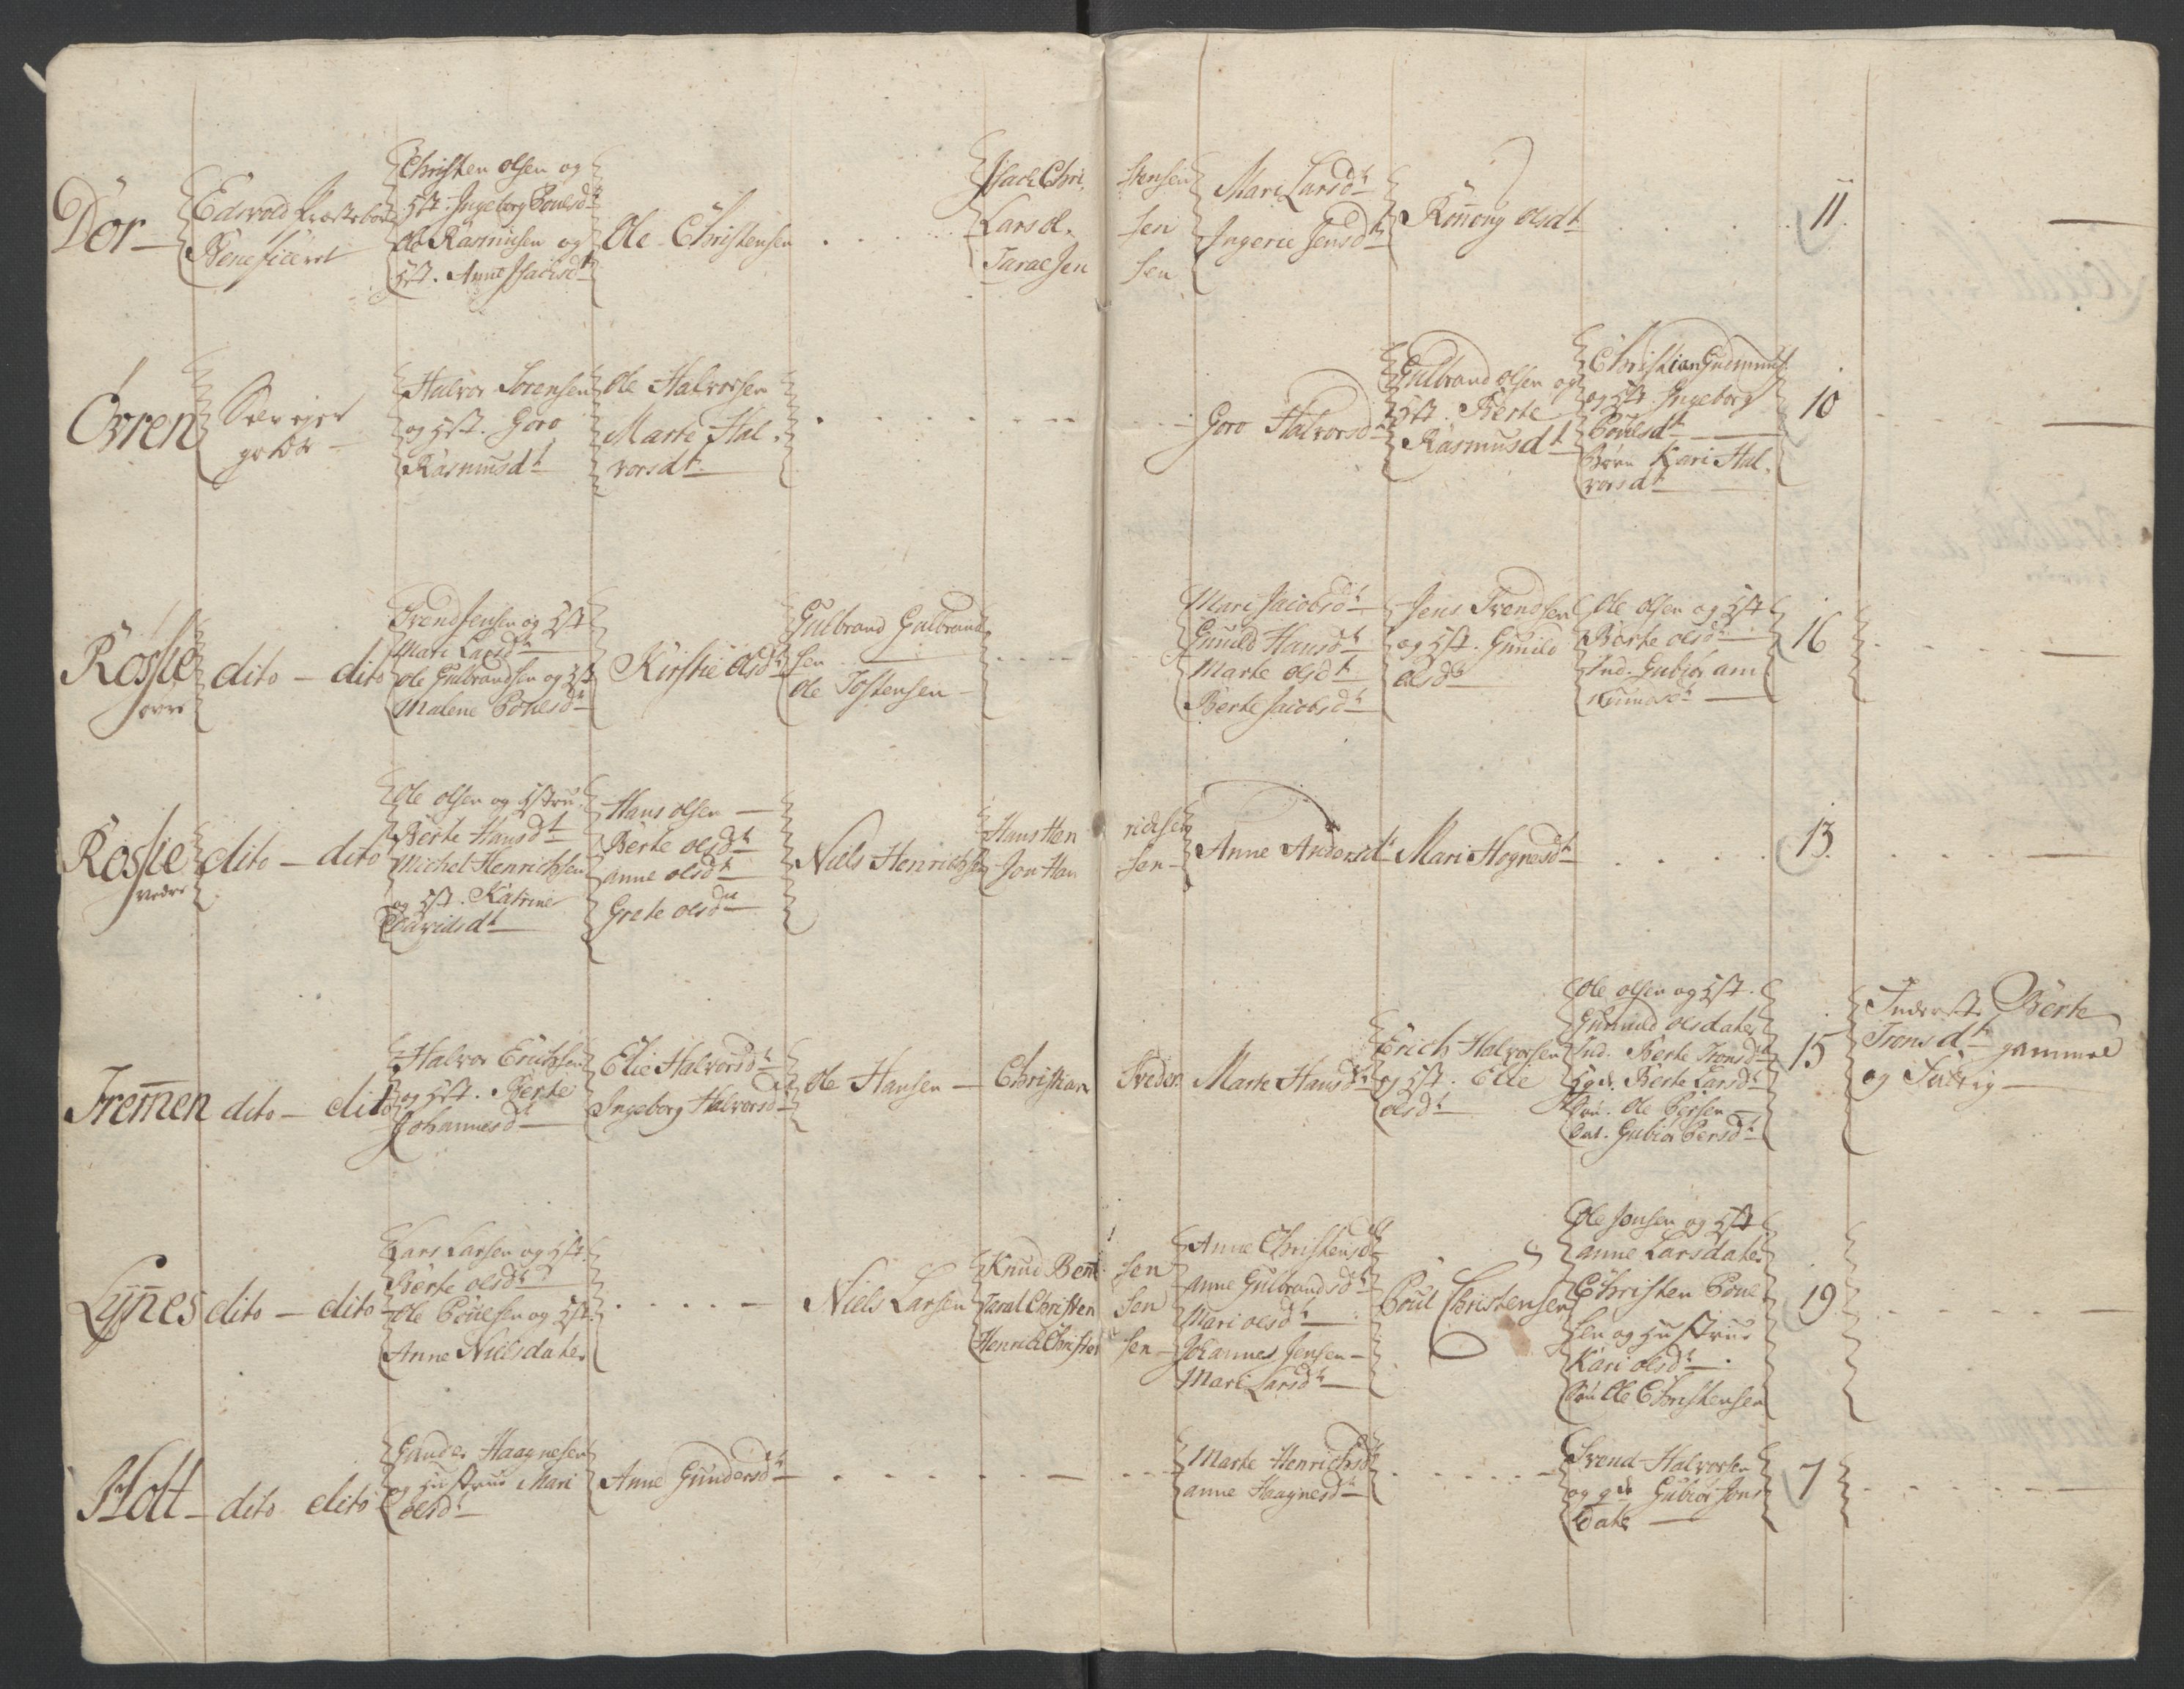 Dör —
Edsvold Præstebol
Beneficeret
Christen olsen og
Hst. Ingeborg Poulsdt
Ole Rasmusen og
Hst. Anne Isachsdt
Ole Christensen
Isach Chri stensen
Lars ol. sen
Taralsen sen
Mari Larsdt
Ingerie Jensdt
Rönnoug olsdt
11.
Öfren
Selv ejer
gods —
Halvor Sörensen
og Hst. Goro
Rasmusdt
Ole Halvorsen
Marte Hal.
vorsdt
Goro Halvorsdt
Gulbrand olsen og
Hst. Berte
Rasmusdt
Christian Gudmunds.
og Hst. Ingeborg
Poulsdt —
Börn Kari Hal.
vorsdt
10
Rossie
övre
dito — dito
Trond Jensen og Hst
Mari Larsdt
Ole Gulbrandsen og Hst
Malene Poulsdt
Kirstie olsdt
Gulbrand Gulbrand
sen —
Ole Tostensen —
Mari Jacobsdt
Gunild Hansdt
Marte olsdt
Berte Jacobsdt
Jens Trondsen
og Hst. Gunild
olsdt
Ole olsen og Hst
Berte olsdt
Ind. Gubiör am
undsdt
16
Rossie
nedre
dito — dito
Ole olsen og Hstru
Berte Hansdt
Michel Henrichsen
og Hst. Katrine
Davidsdt
Hans olsen —
Berte olsdt
anne olsdt
Grete olsdt
Niels Henrichsen
Hans Hen richsen
Jon Han sen —
Anne Andersdt
Mari Hognesdt
13.
Tremen
dito — dito
Halvor Erichsen
og Hst. Berte
Johannesdt
Elie Halvorsdt
Ingeborg Halvorsdt
Ole Hansen —
Christian Freder.
Marte Hansdt
Erich Halvorsen
og Hst. Elie
olsdt
Ole olsen og Hst.
Gunnild olsdater
Ind. Berte Tronsdt
Hgd. Berte Larsdt
Sön. Ole Persen —
Dat. Gubiör Persdt
15
Inderste Berte
Tronsdt gammel
og Fattig —
Lynes
dito — dito
Lars Larsen og Hst.
Berte olsdt
Ole Poulsen og Hst.
Anne Nielsdater
Niels Larsen
Knud Bent sen
Taral Christen sen
Henrich Christen sen —
Anne Christensdt
Anne Gulbrandsdt
Mari olsdt
Johannes Jensen —
Mari Larsdt
Poul Christensen
Ole Jonsen og Hst
anne Larsdater
Christen Poul
sen og Hustrue
Kari olsdt
Sön Ole Christensen
19
Holt —
dito dito
Gunder Haagnesen
og Hustrue Mari
olsdt
Anne Gundersdt
Marte Henrichsdt
anne Haagnesdt
Svend Halvorsen
og qde Gubiör Jons
dater —
7